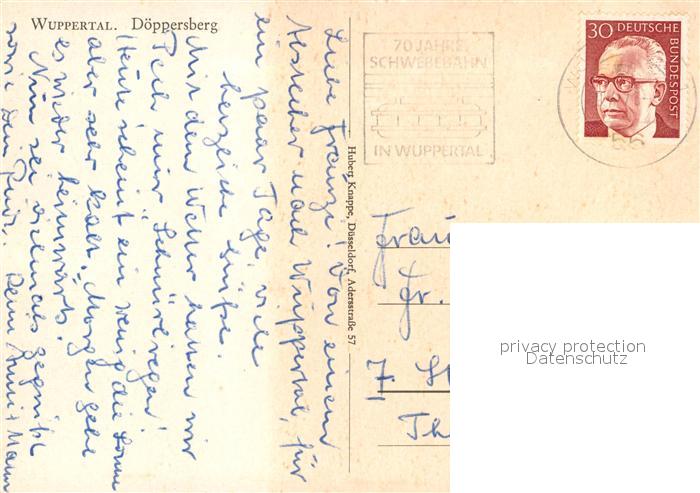 WUPPERTAL. Döppersberg
Liebe Franzi! Von einem
Abstecher nach Wuppertal, für
ein paar Tage, viele
herzliche Grüße.
Mit dem Wetter haben wir
Pech mir Schnürlregen!
Heute scheint ein wenig die Sonne
aber sehr kalt. Morgen geht
es wieder heimwärts.
Nun sei vielmals gegrüßt
sowie Dein Rudi. Deine Anni + Mann
Hubert Knappe, Düsseldorf, Adersstraße 57
70 JAHRE
SCHWEBEBAHN
IN WUPPERTAL
30 DEUTSCHE
BUNDESPOST
Frau
Fr.
7 St
Th
privacy protection
Datenschutz